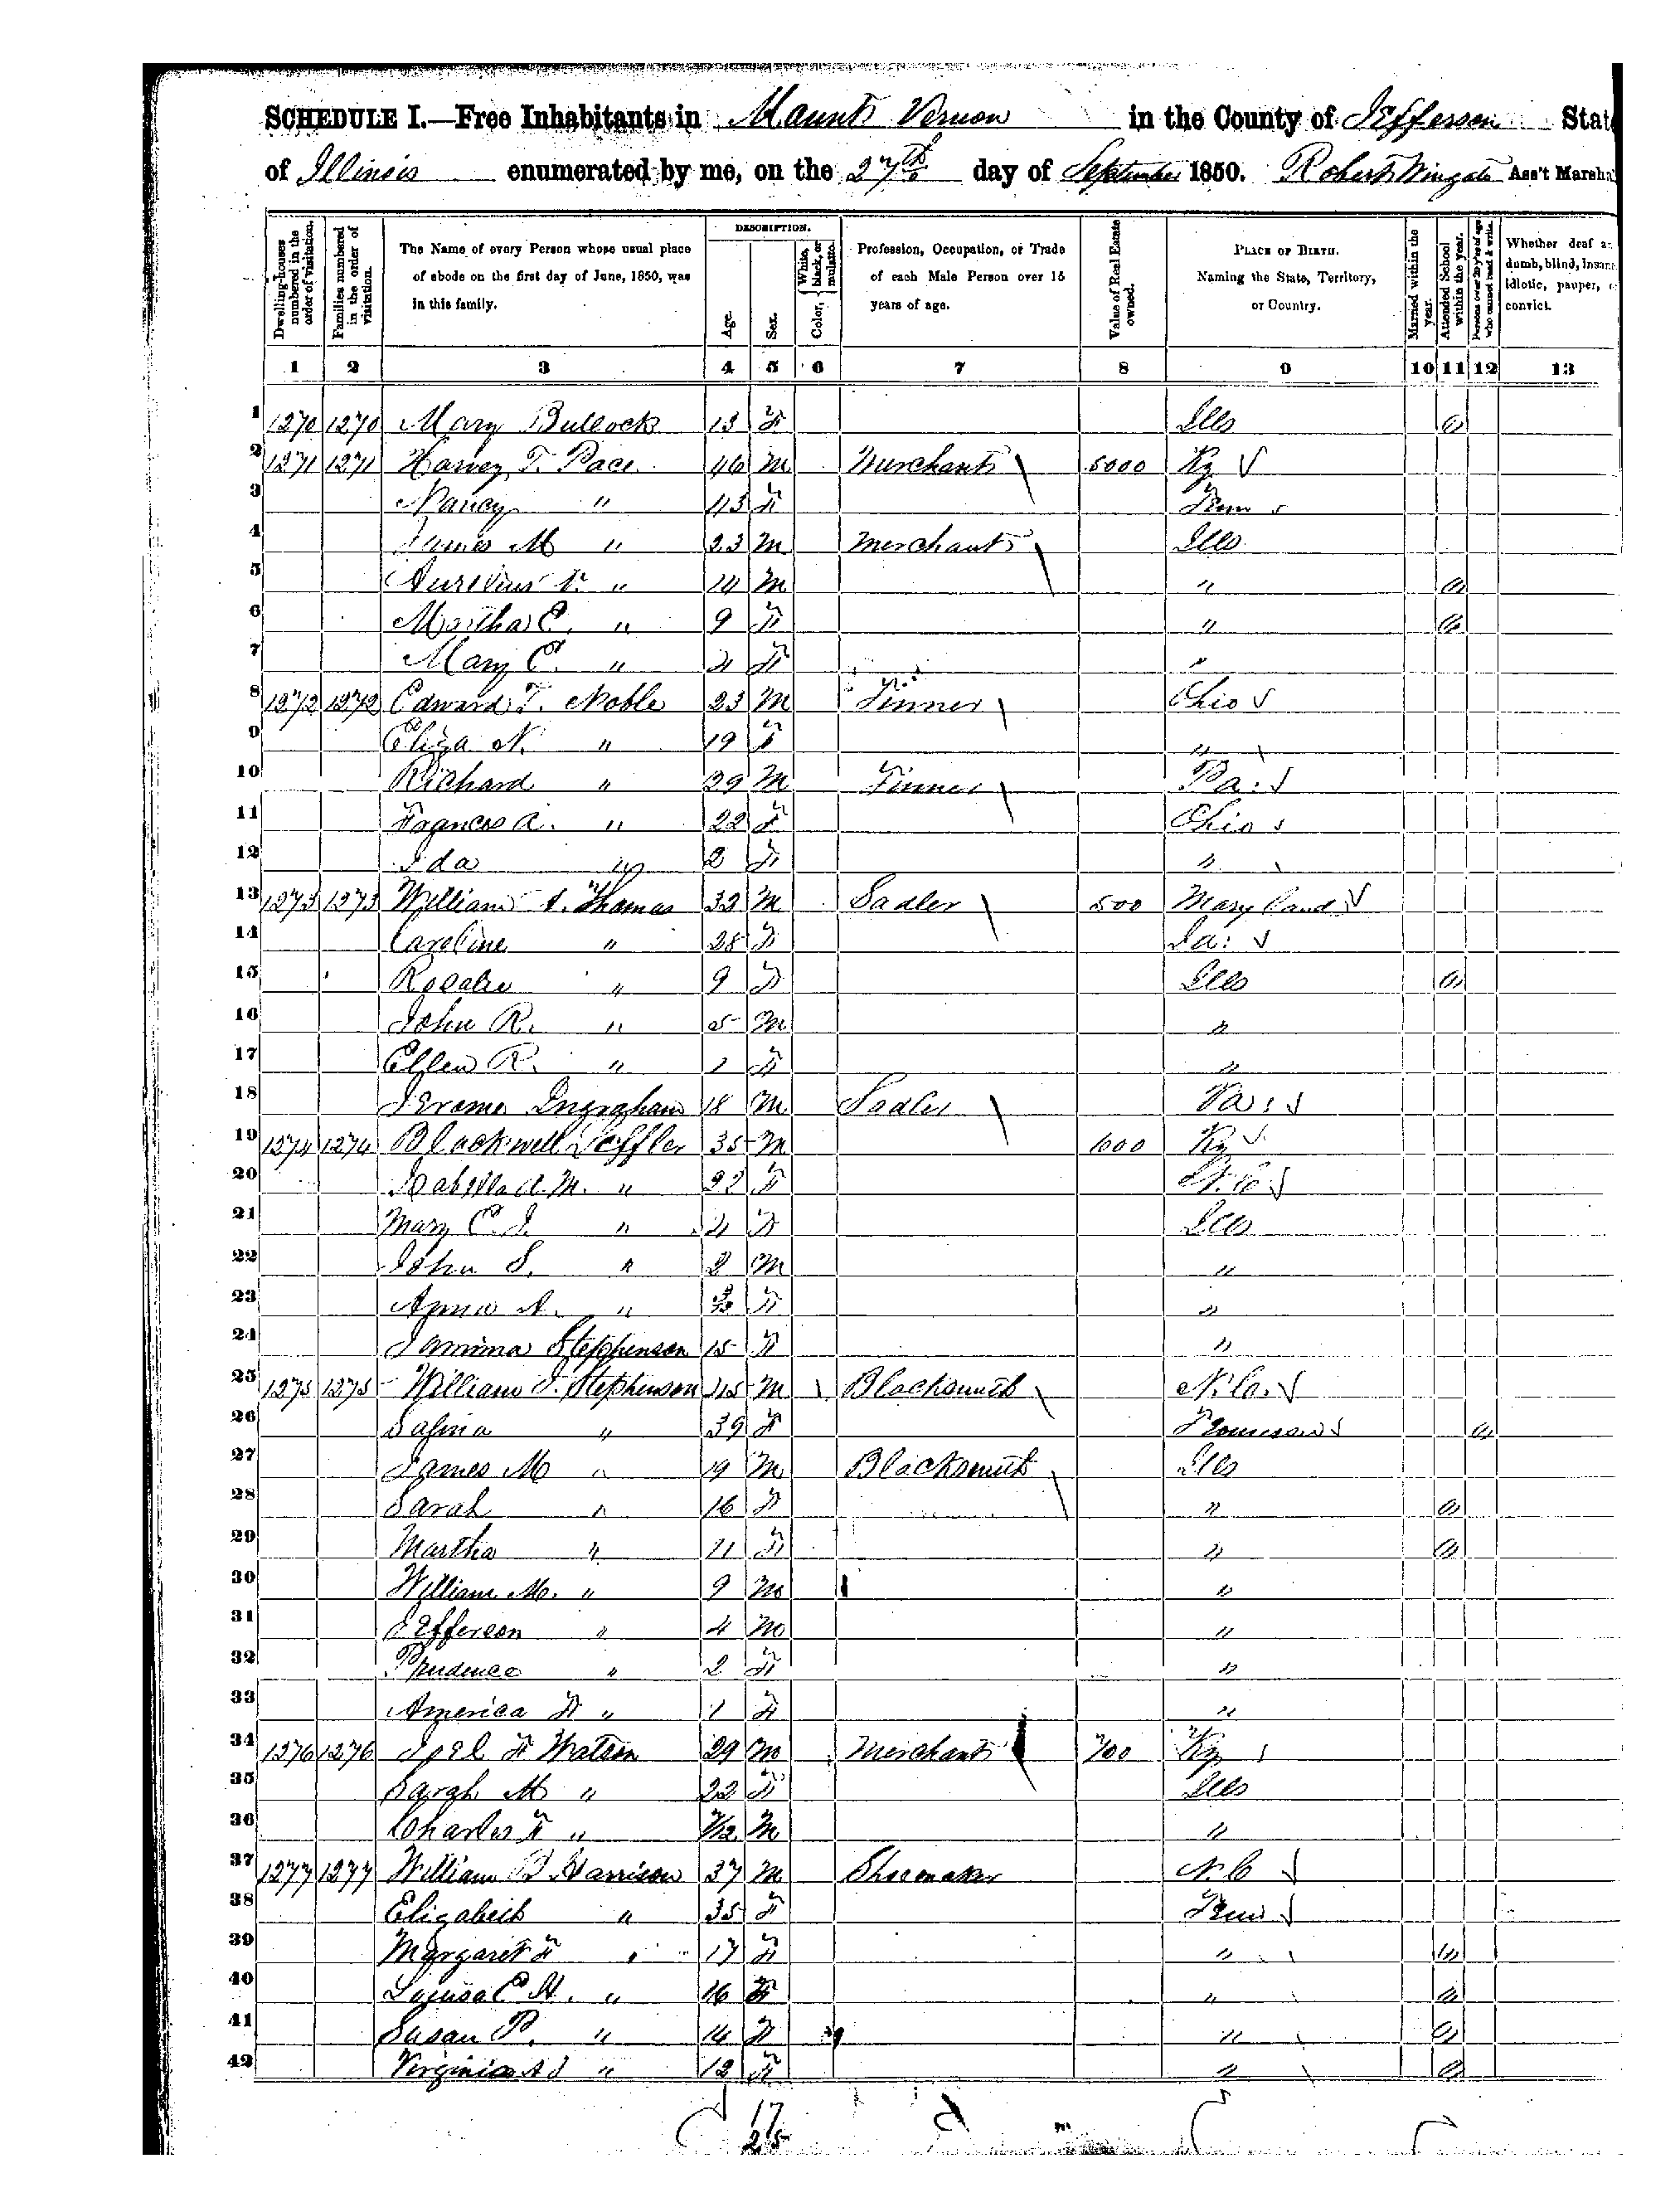 SCHEDULE I.—Free Inhabitants in Mount Vernon in the County of Jefferson State
of Illinois enumerated by me, on the 27th day of September 1850. Robert Wingate Ass't Marshal
Dwelling-houses numbered in the order of visitation. Families numbered in the order of visitation. The Name of every Person whose usual place of abode on the first day of June, 1850, was in this family. DESCRIPTION. Age. Sex. Color, White, black, or mulatto. Profession, Occupation, or Trade of each Male Person over 15 years of age. Value of Real Estate owned. PLACE OF BIRTH. Naming the State, Territory, or Country. Married within the year. Attended School within the year. Persons over 20 y'rs of age who cannot read & write. Whether deaf and dumb, blind, insane, idiotic, pauper, or convict.
1 2 3 4 5 6 7 8 9 10 11 12 13
1 1270 1270 Mary Bullock 13 F Ills
2 1271 1271 Harvey T. Pace 46 M Murchant 5000 Ky
3 Nancy " 43 F Tenn
4 James M " 23 M Merchant Ills
5 Aurelius " 14 M "
6 Martha C. " 9 F "
7 Mary C. " 4 F "
8 1272 1272 Edward T. Noble 23 M Tinner Ohio
9 Eliza N. " 19 F "
10 Richard " 29 M Tinner Pa.
11 Frances A. " 22 F Ohio
12 Ida " 2 F "
13 1273 1273 William A. Thomas 32 M Sadler 500 Maryland
14 Caroline " 28 F
15 Rosalie " 9 F Ills
16 John R. " 5 M "
17 Ellen R. " 1 F "
18 Jerome Ingraham 18 M Sadler
19 1274 1274 Blackwell Leffler 35 M Ky
20 Isabella A. M. " F
21 Mary C. J. " 4 F Ills
22 John S. " 2 M "
23 " F "
24 Jamima Stephenson 15 F "
25 1275 1275 William J. Stephenson 45 M Blacksmith N. Ca.
26 Safina " 39 F
27 James M " 19 M Blacksmith Ills
28 Sarah " 16 F "
29 Martha " 11 F "
30 William M. " 9 M "
31 Jefferson " 4 M "
32 Prudence " 2 F "
33 America F " 1 F "
34 1276 1276 Joel F Watson 29 M Merchant 700 Ky
35 Sarah M " 22 F Ills
36 Charles F " 7/12 M "
37 1277 1277 William B Harrison 37 M Shoemaker N. C
38 Elizabeth " 35 F Tenn
39 Margaret F " 17 F "
40 Louisa C H. " 16 F "
41 Susan P. " 14 F "
42 Virginia A J " 12 F "
17
25